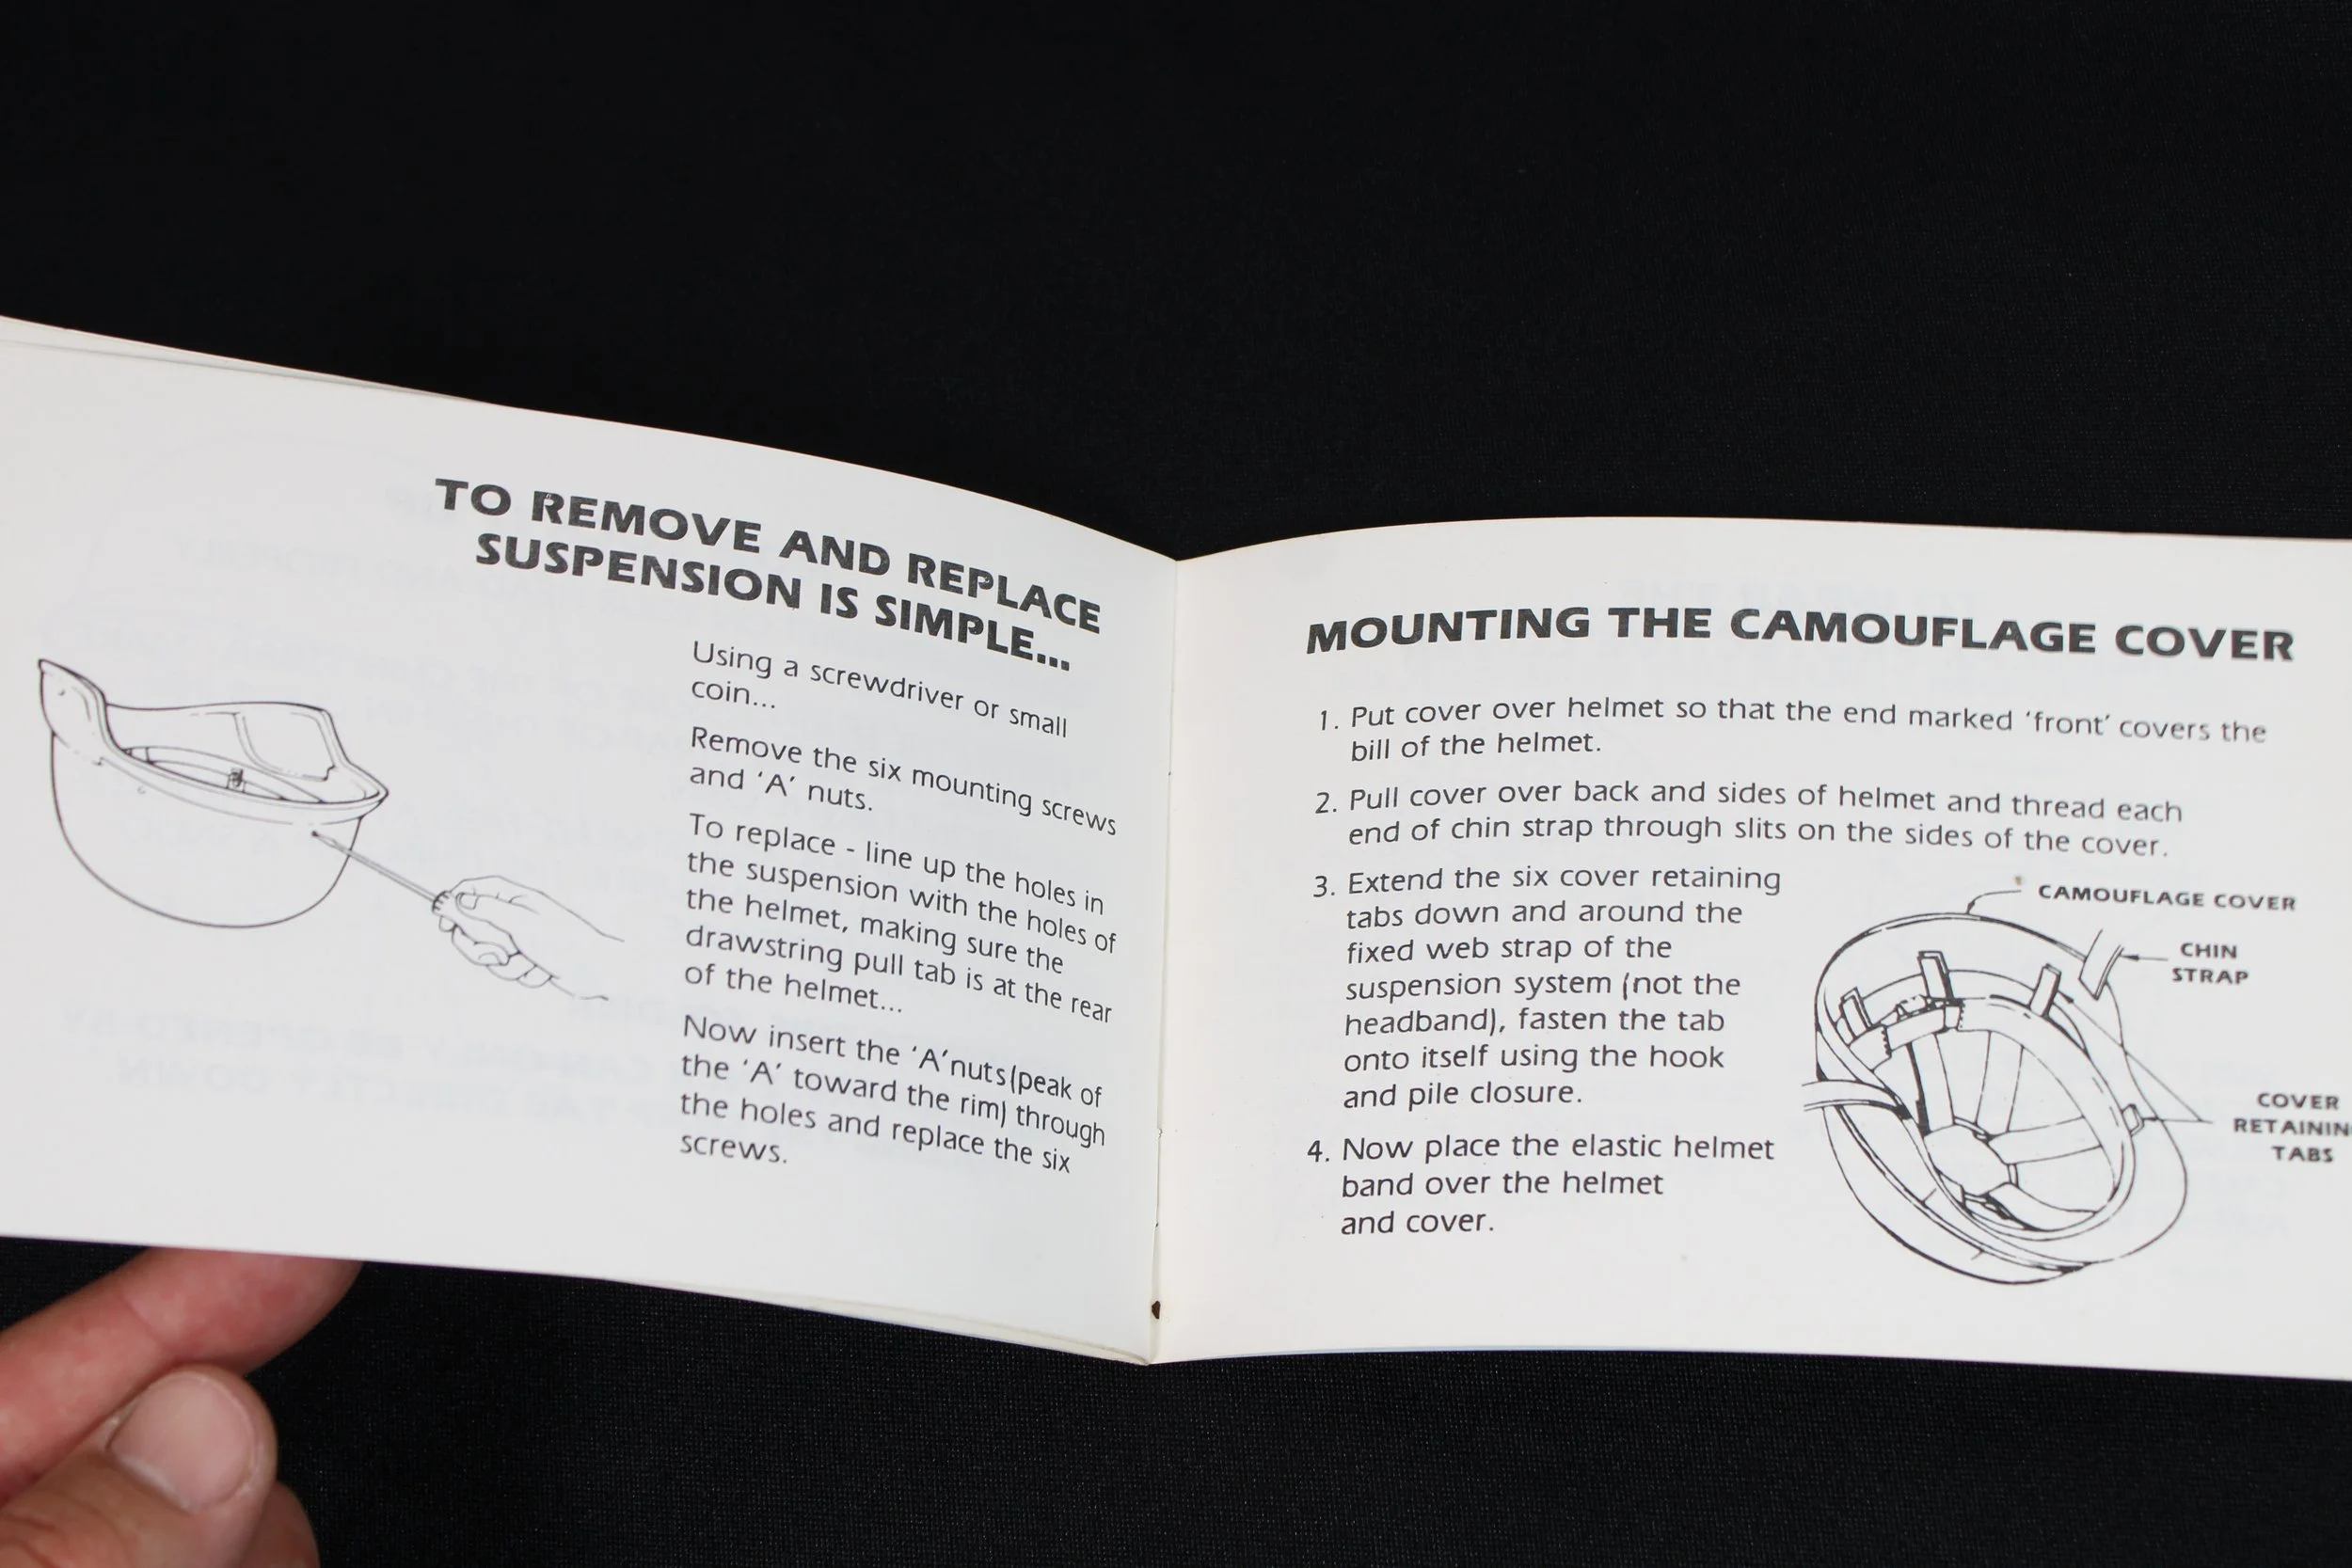 TO REMOVE AND REPLACE
SUSPENSION IS SIMPLE...
Using a screwdriver or small
coin...
Remove the six mounting screws
and ‘A’ nuts.
To replace - line up the holes in
the suspension with the holes of
the helmet, making sure the
drawstring pull tab is at the rear
of the helmet...
Now insert the ‘A’nuts(peak of
the ‘A’ toward the rim) through
the holes and replace the six
screws.
MOUNTING THE CAMOUFLAGE COVER
1. Put cover over helmet so that the end marked ‘front’ covers the
bill of the helmet.
2. Pull cover over back and sides of helmet and thread each
end of chin strap through slits on the sides of the cover.
3. Extend the six cover retaining
tabs down and around the
fixed web strap of the
suspension system (not the
headband), fasten the tab
onto itself using the hook
and pile closure.
4. Now place the elastic helmet
band over the helmet
and cover.
CAMOUFLAGE COVER
CHIN
STRAP
COVER
RETAININ
TABS